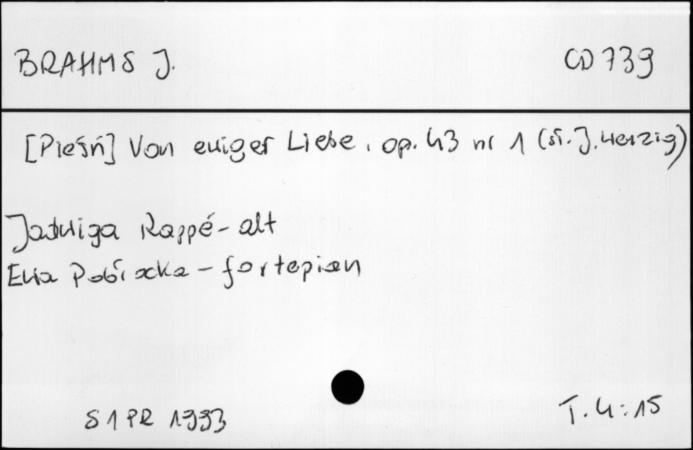 BRAHMS J. CD 739
[Pieśń] Von ewiger Liebe, op. 43 nr 1 (sł. J. Wenzig)
Jadwiga Rappé - alt
Ewa Pobłocka - fortepian
S1 PR 1993 T. 4:15